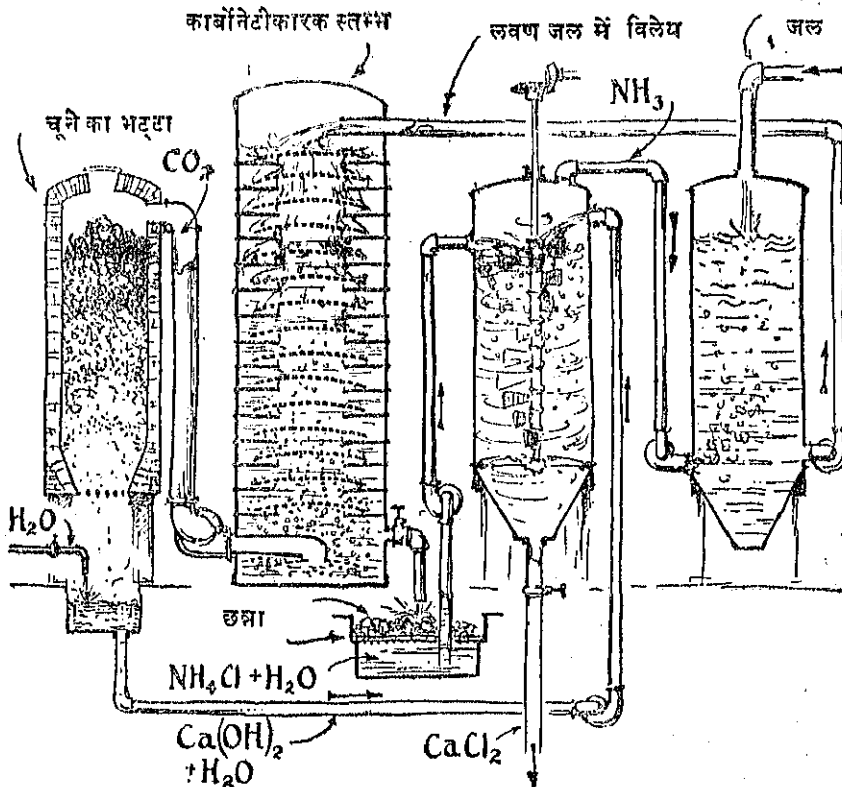 कार्बोनेटीकारक स्तम्भ
लवण जल में विलेय
जल
चूने का भट्टा
CO₂
NH₃
H₂O
छन्ना
NH₄Cl + H₂O
Ca(OH)₂
+H₂O
CaCl₂